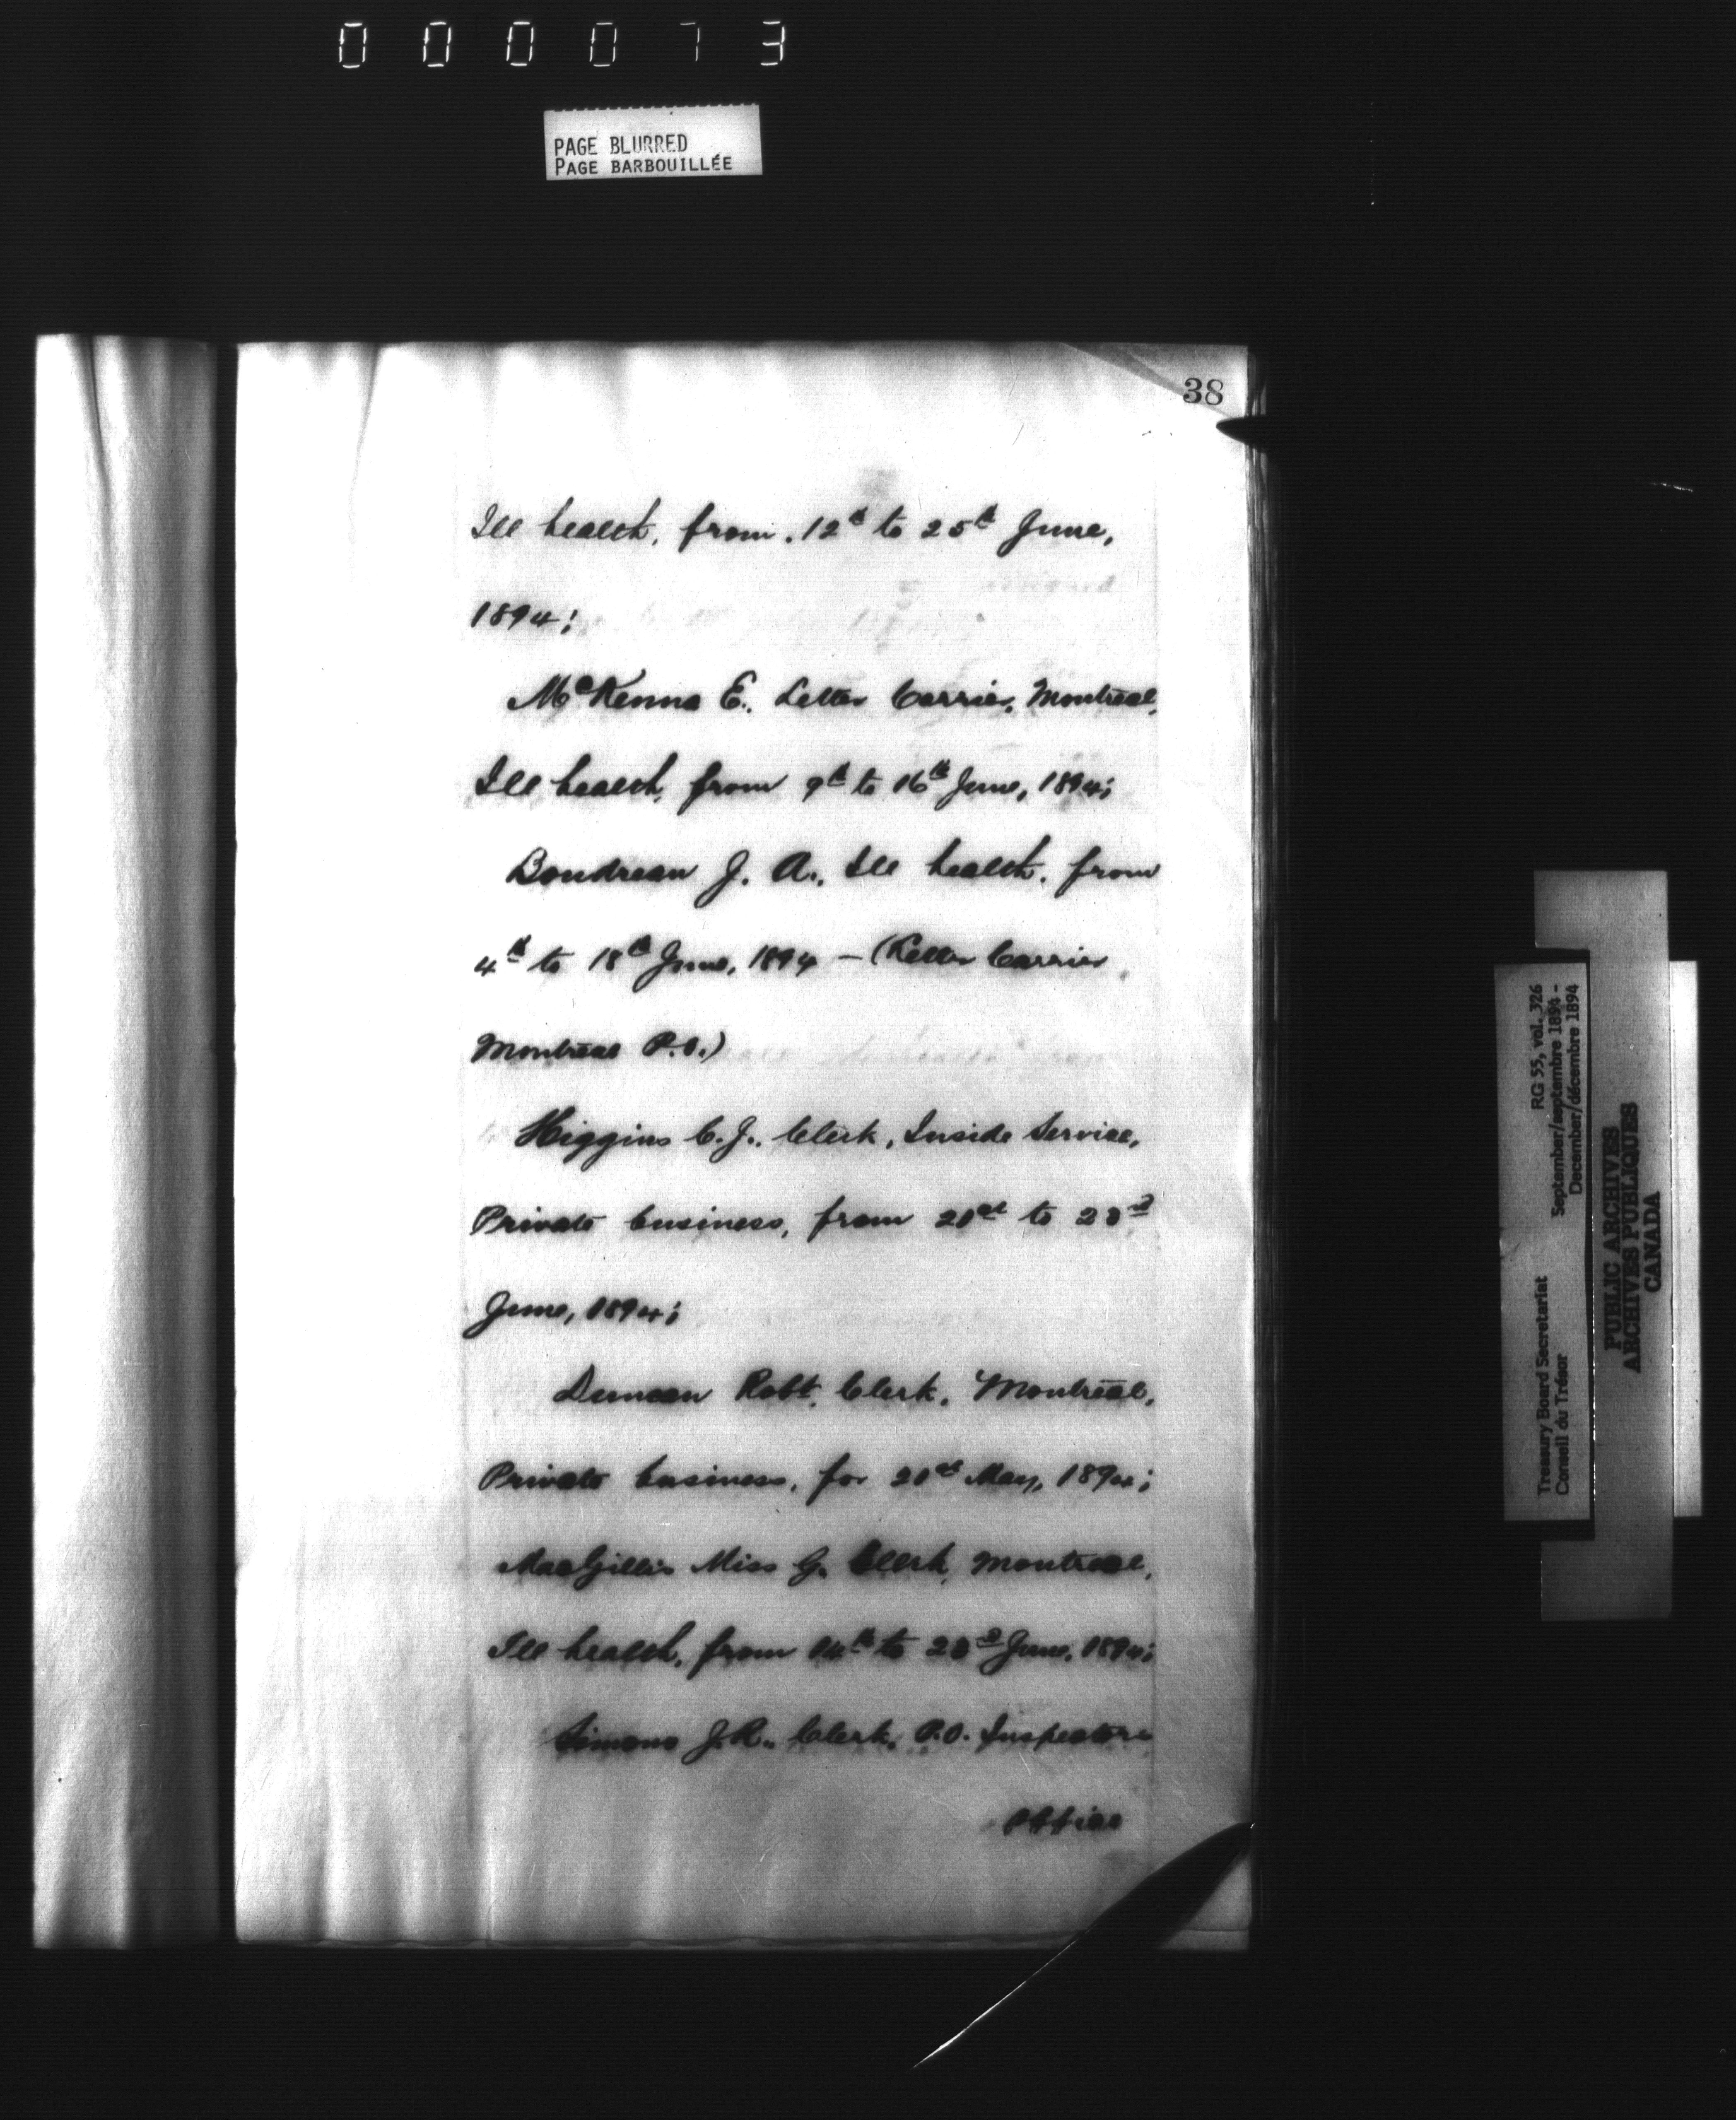 000073
PAGE BLURRED
PAGE BARBOUILLÉE
38
Ill health, from 12th to 25th June,
1894;
McKenna E., Letter Carrier, Montreal,
Ill health, from 9th to 16th June, 1894;
Boudreau J. A., Ill health, from
4th to 18th June, 1894 — (Letter Carrier
Montreal P.O.)
Higgins C. J., Clerk, Inside Service,
Private business, from 21st to 23rd
June, 1894;
Duncan Robt, Clerk, Montreal,
Private business, for 21st May, 1894;
MacGillis Miss G. Clerk, Montreal,
Ill health, from 14th to 23rd June, 1894;
Simons J. R., Clerk, P.O. Inspectors
Office
Treasury Board Secretariat RG 55, vol. 326
Conseil du Trésor September/septembre 1894 -
December/décembre 1894
PUBLIC ARCHIVES
ARCHIVES PUBLIQUES
CANADA